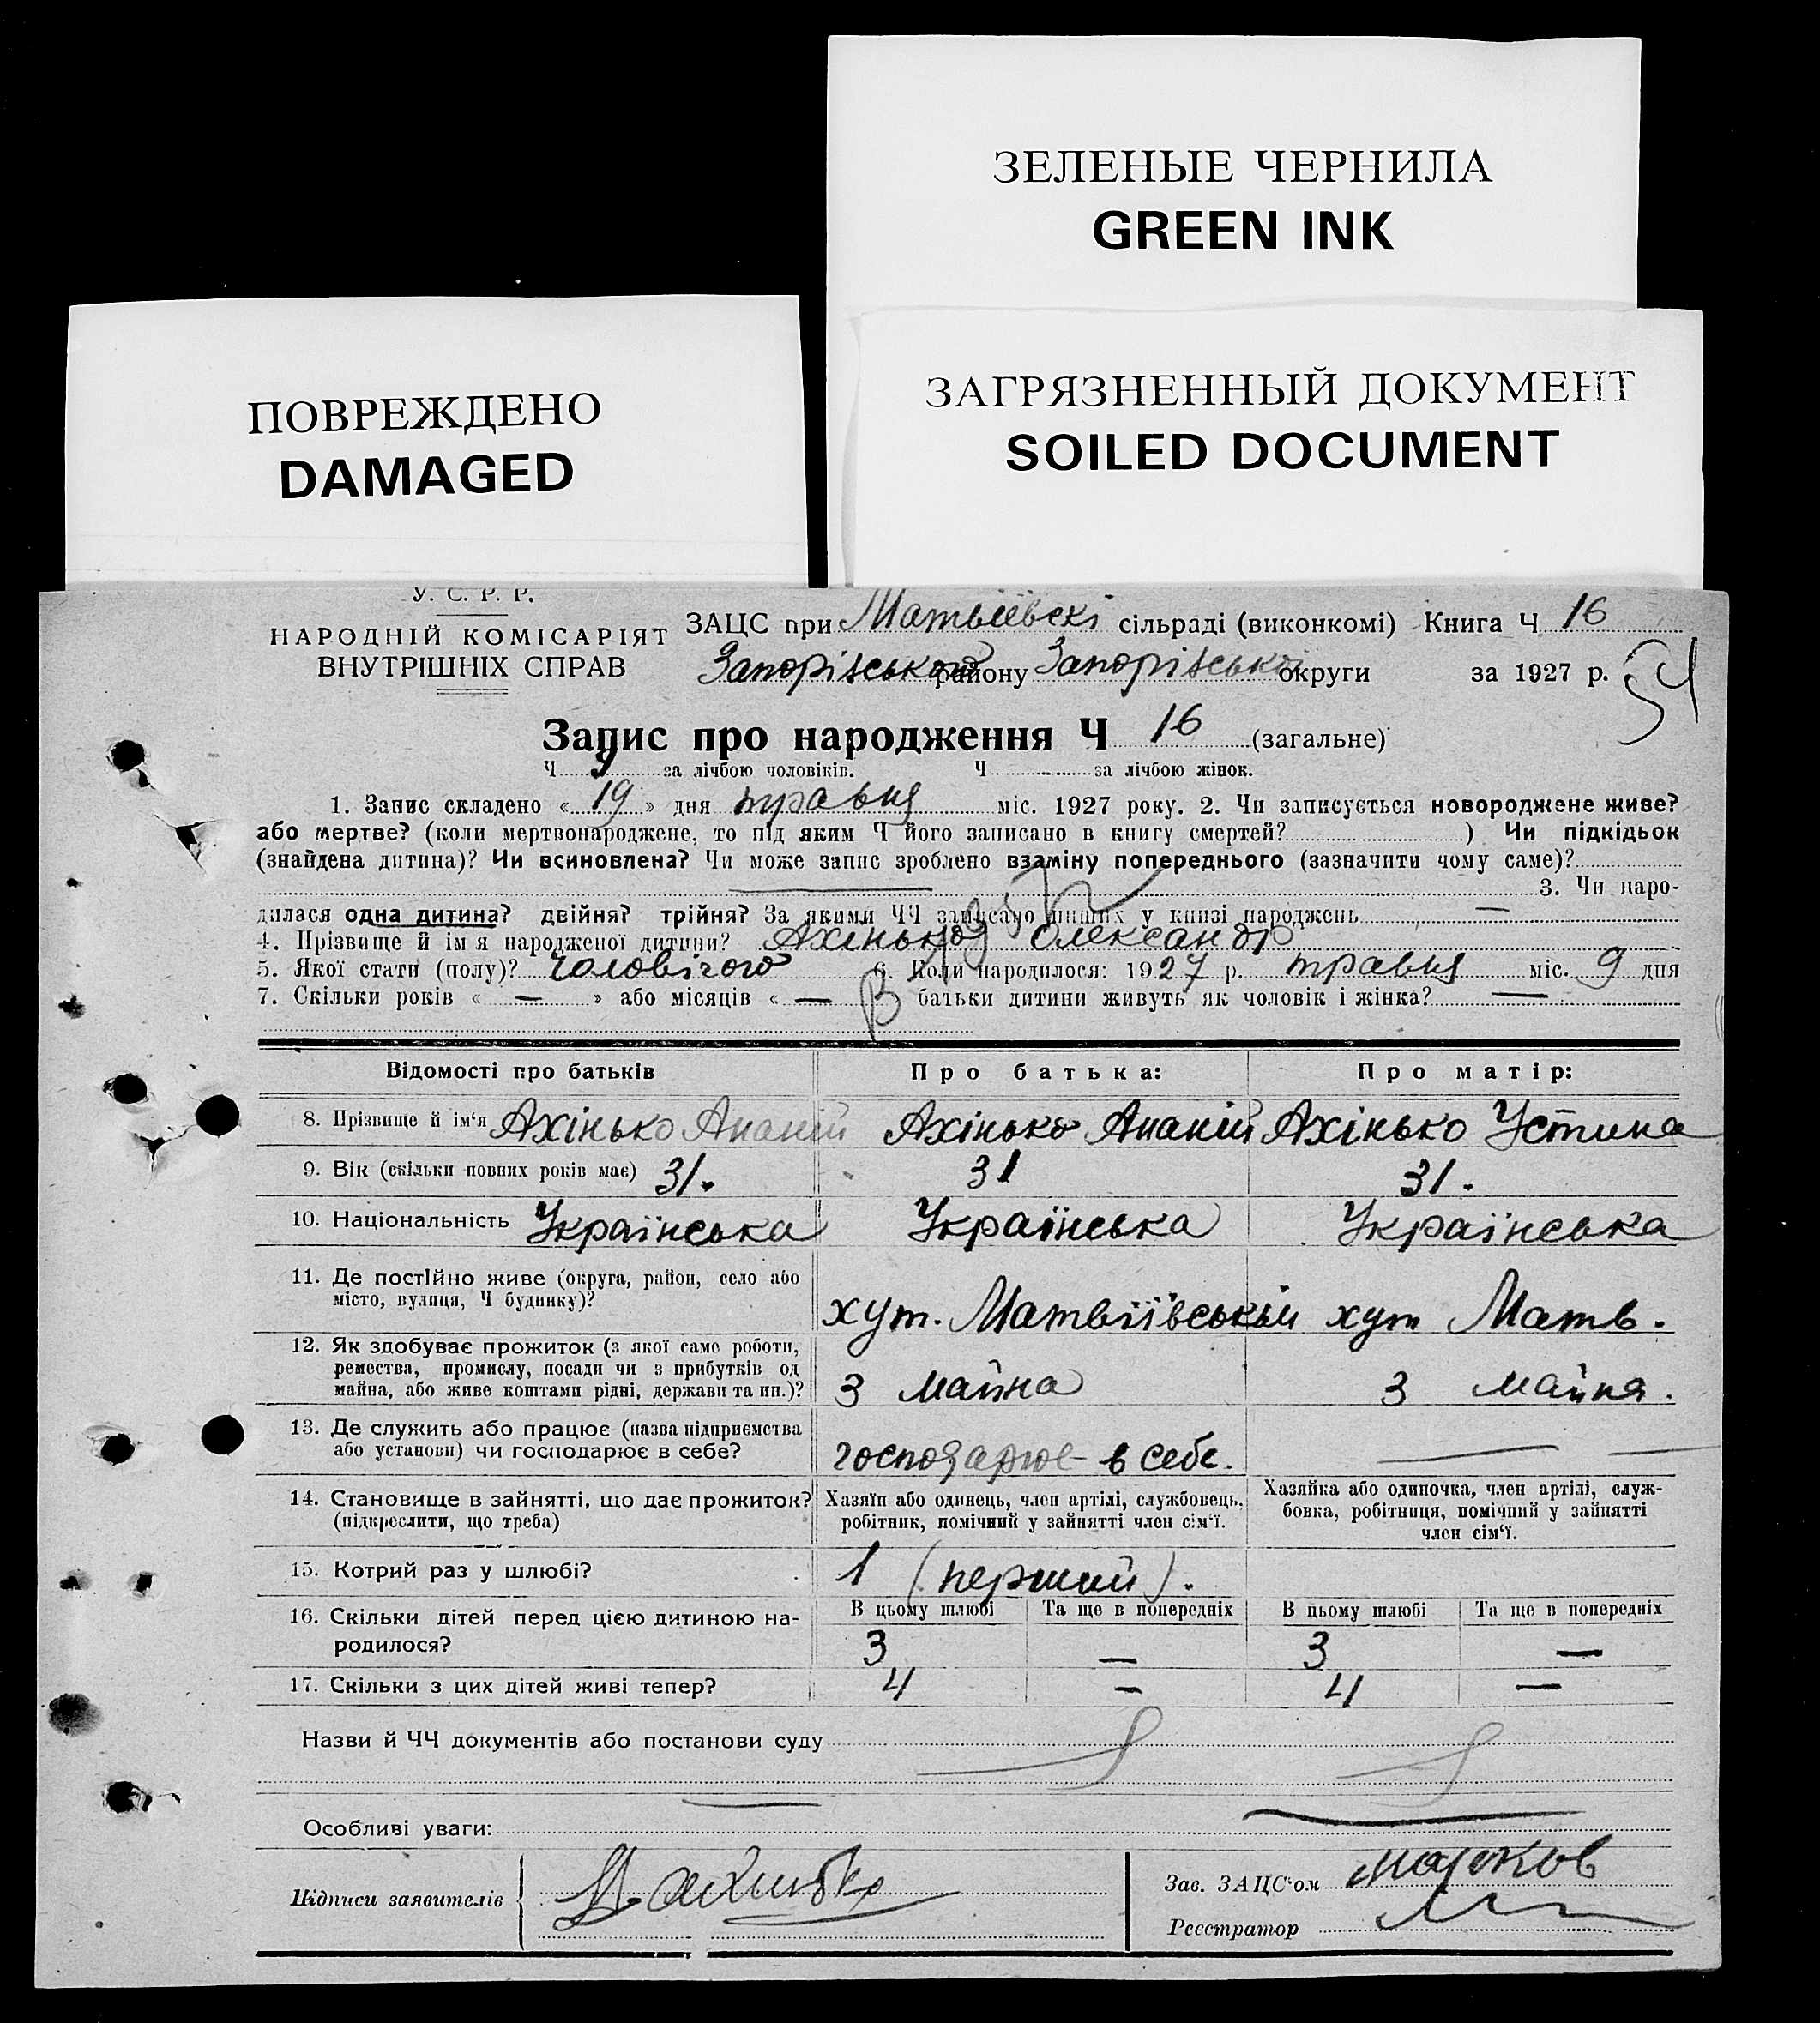 ЗЕЛЕНЫЕ ЧЕРНИЛА
GREEN INK
ПОВРЕЖДЕНО
DAMAGED
ЗАГРЯЗНЕННЫЙ ДОКУМЕНТ
SOILED DOCUMENT
У. С. Р. Р.
НАРОДНІЙ КОМІСАРІЯТ
ВНУТРІШНІХ СПРАВ
ЗАЦС при Матвіївскі сільраді (виконкомі) Книга Ч 16
Запорізького району Запорізської округи за 1927 р.
54
Запис про народження Ч 16 (загальне)
Ч 9 за лічбою чоловіків. Ч за лічбою жінок.
1. Запис складено « 19 » дня травня міс. 1927 року. 2. Чи записується новороджене живе?
або мертве? (коли мертвонароджене, то під яким Ч його записано в книгу смертей? ) Чи підкідьок
(знайдена дитина)? Чи всиновлена? Чи може запис зроблено взаміну попереднього (зазначити чому саме)?
— 3. Чи наро-
дилася одна дитина? двійня? трійня? За якими ЧЧ записано инших у книзі народжень —
4. Прізвище й ім'я народженої дитини? Ахінько Олександр
5. Якої стати (полу)? Чоловічого 6. Коли народилося: 1927 р. травня міс. 9 дня
7. Скільки років « — » або місяців « — батьки дитини живуть як чоловік і жінка? —
Відомості про батьків Про батька: Про матір:
8. Прізвище й ім'я Ахінько Ананій Ахінько Ананій Ахінько Устина
9. Вік (скільки повних років має) 31. 31 31.
10. Національність Українська Українська Українська
11. Де постійно живе (округа, район, село або
місто, вулиця, Ч будинку)?
хут. Матвіївській хут Матв.
12. Як здобуває прожиток (з якої само роботи,
ремества, промислу, посади чи з прибутків од
майна, або живе коштами рідні, держави та ин.)?
З майна З майна.
13. Де служить або працює (назва підприємства
або установи) чи господарює в себе?
господарює в себе. —
14. Становище в зайнятті, що дає прожиток?
(підкреслити, що треба)
Хазяїн або одинець, член артілі, службовець,
робітник, помічний у зайнятті член сім'ї.
Хазяйка або одиночка, член артілі, служ-
бовка, робітниця, помічний у зайнятті
член сім'ї.
15. Котрий раз у шлюбі? 1 (перший).
16. Скільки дітей перед цією дитиною на-
родилося?
В цьому шлюбі Та ще в попередніх В цьому шлюбі Та ще в попередніх
3 — 3 —
17. Скільки з цих дітей живі тепер? 4 — 4 —
Назви й ЧЧ документів або постанови суду
Особливі уваги:
Підписи заявителів
Зав. ЗАЦС'ом
Реєстратор